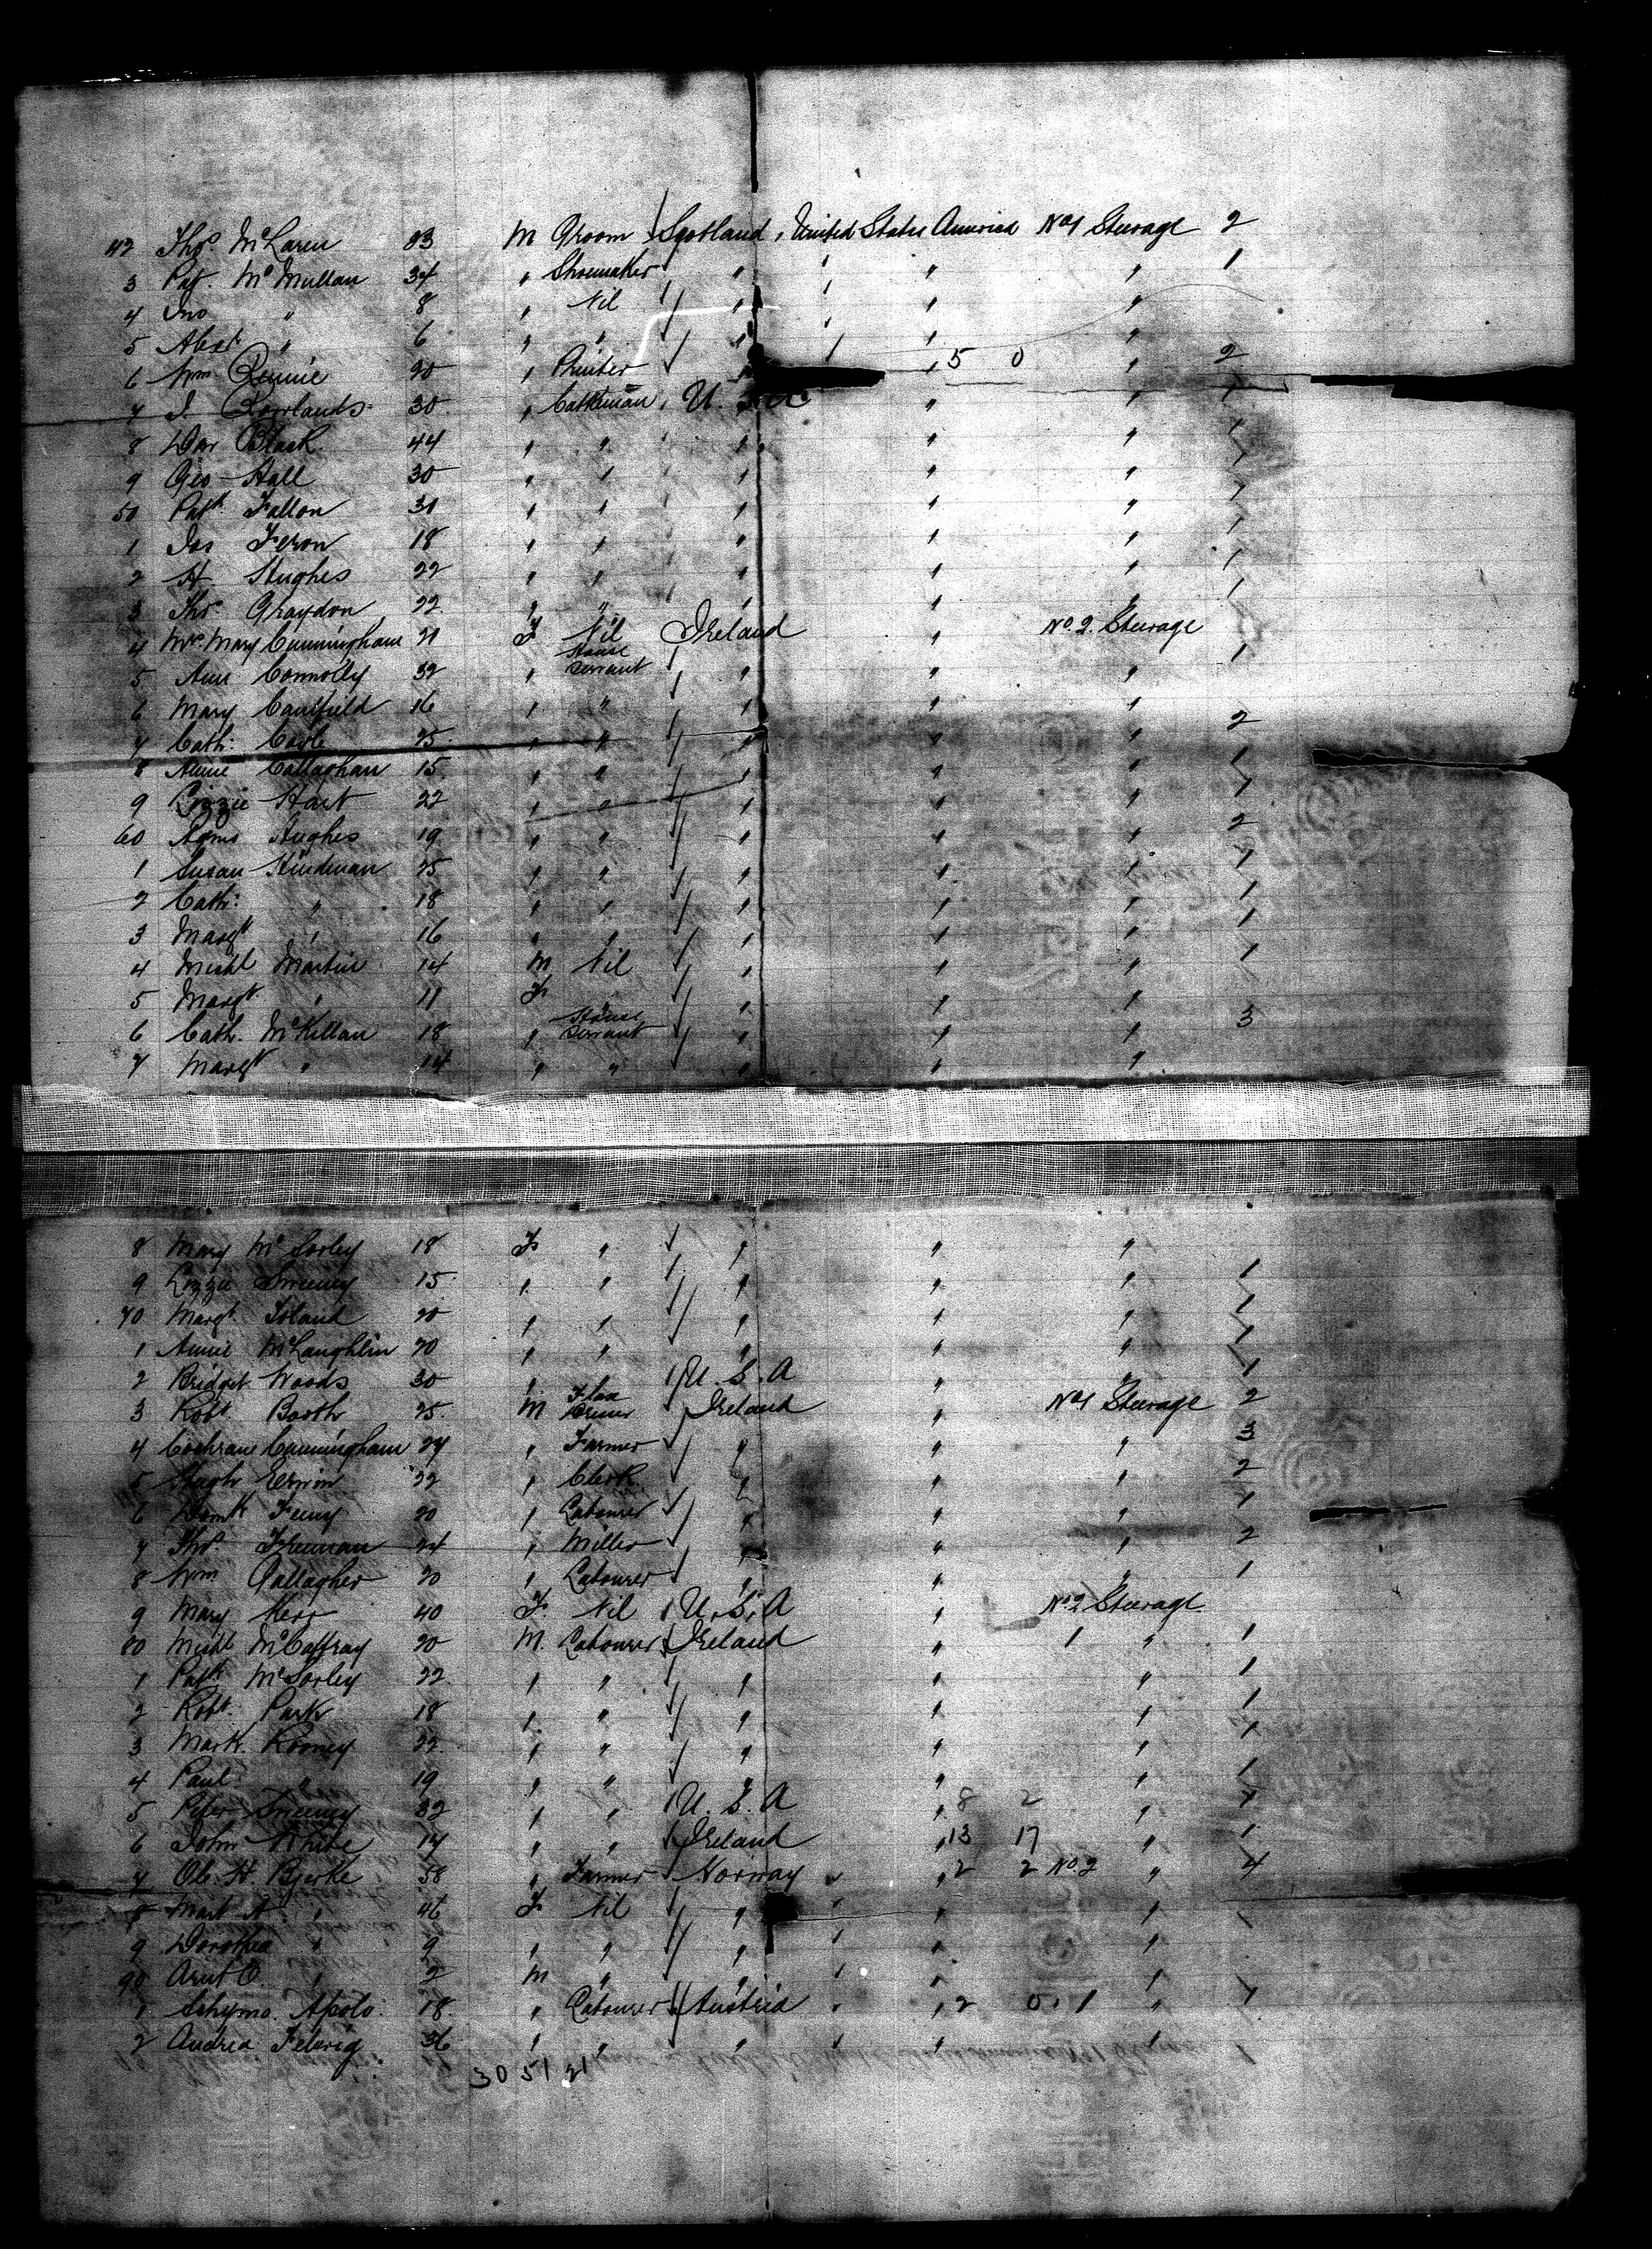 42 Thos McLaren 23 M Groom Scotland United States America No 1 Steerage 2
3 Pat. McMullan 34 " Shoemaker " " " " 1
4 Jno " 8 " Nil " " " "
5 Alexr " 6 " " " " " "
6 Wm Rennie 20 " Printer " " " 5 0 " 2
7 J. Rowlands 30 " Cattleman U. S. A " " 1
8 Black 44 " " " " " 1
9 Geo Hall 30 " " " " " 1
50 Patk Fallon 31 " " " " " 1
1 Jas Feron 18 " " " " " 1
2 H. Hughes 22 " " " " " 1
3 Thos Graydon 22 " " " " " 1
4 Mrs Mary Cunningham 21 F Nil Ireland " No. 2. Steerage
5 Ann Connolly 32 " House Servant " " " 1
6 Mary Caulfield 16 " " " " "
7 Cath: 25 " " " " " 2
8 Annie Callaghan 15 " " " " " 1
9 Lizzie Hart 22 " " " " " 1
60 Agnes Hughes 19 " " " " " 2
1 Susan Hindman 25 " " " " " 1
2 Cath: " 18 " " " " " 1
3 Margt " 16 " " " " " 1
4 Michl Martin 14 M Nil " " " 1
5 Margt " 11 F " " " "
6 Cath. McKillan 18 " House Servant " " " 3
7 Margt " 14 " " " " "
8 Mary McSorley 18 F " " " "
9 Lizzie Sweeney 15 " " " " " 1
70 Margt Toland 20 " " " " " 1
1 Annie McLaughlin 20 " " " " " 1
2 Bridget Woods 30 " " U. S. A " " 1
3 Robt Booth 25 M Flax Ireland " No 1 Steerage 2
4 Cochrane Cunningham 27 " Farmer " " " 3
5 Hugh Erwin 22 " Clerk " " " 2
6 Domk Feeny 20 " Labourer " " " 1
7 Thos Freeman 24 " Miller " " " 2
8 Wm Gallagher 20 " Labourer " " " 1
9 Mary Kerr 40 F. Nil U. S. A " No. 2 Steerage
80 Michl McCaffray 20 M. Labourer Ireland " 1 " 1
1 Patk McSorley 22 " " " " " 1
2 Robt Park 18 " " " " " 1
3 Mark Rooney 22 " " " " " 1
4 Paul " 19 " " " " " 1
5 Peter Sweeney 32 " " U. S. A " 8 2 " 1
6 John White 17 " " Ireland " 13 17 " 1
7 Ole H. Bjerke 58 " Farmer Norway " " 2 2 No. 2 " 4
8 " 46 F Nil " " " "
9 Dorothea " 9 " " " " " "
90 " 2 M " " " " "
1 18 " Labourer Austria " " 2 0 1 " 1
2 Andrea 36 " " " " " "
30 51 21